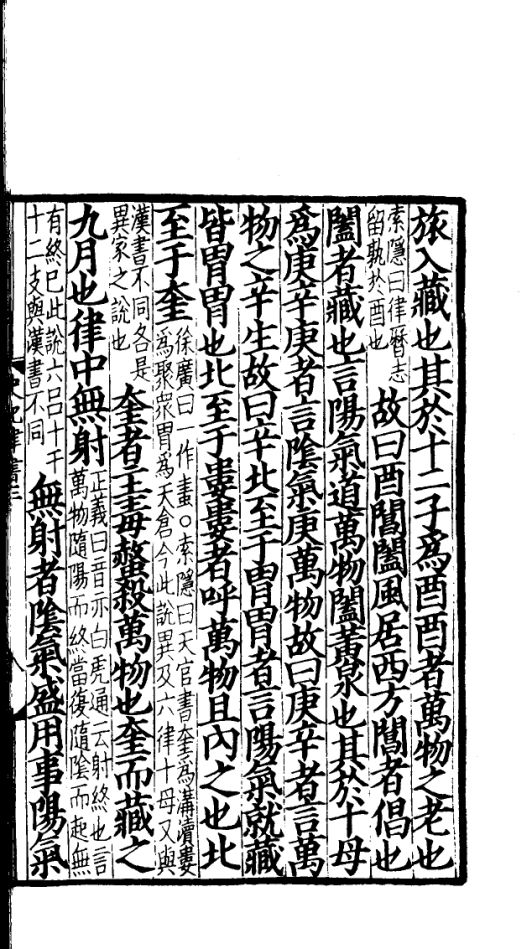 旅入藏也其於十二子爲酉酉者萬物之老也
索隱曰律曆志
留孰於酉也
故曰酉閶闔風居西方閶者倡也
闔者藏也言陽氣道萬物闔黃泉也其於十母
爲庚辛庚者言陰氣庚萬物故曰庚辛者言萬
物之辛生故曰辛北至于胃胃者言陽氣就藏
皆胃胃也北至于婁婁者呼萬物且內之也北
至于奎
徐廣曰一作畫○索隱曰天官書奎爲溝瀆婁
爲聚衆胃爲天倉今此說異及六律十母又與
漢書不同各是
異家之說也
奎者主毒螫殺萬物也奎而藏之
九月也律中無射
正義曰音亦白虎通云射終也言
萬物隨陽而終當復隨陰而起無
有終已此說六呂十干
十二支與漢書不同
無射者陰氣盛用事陽氣